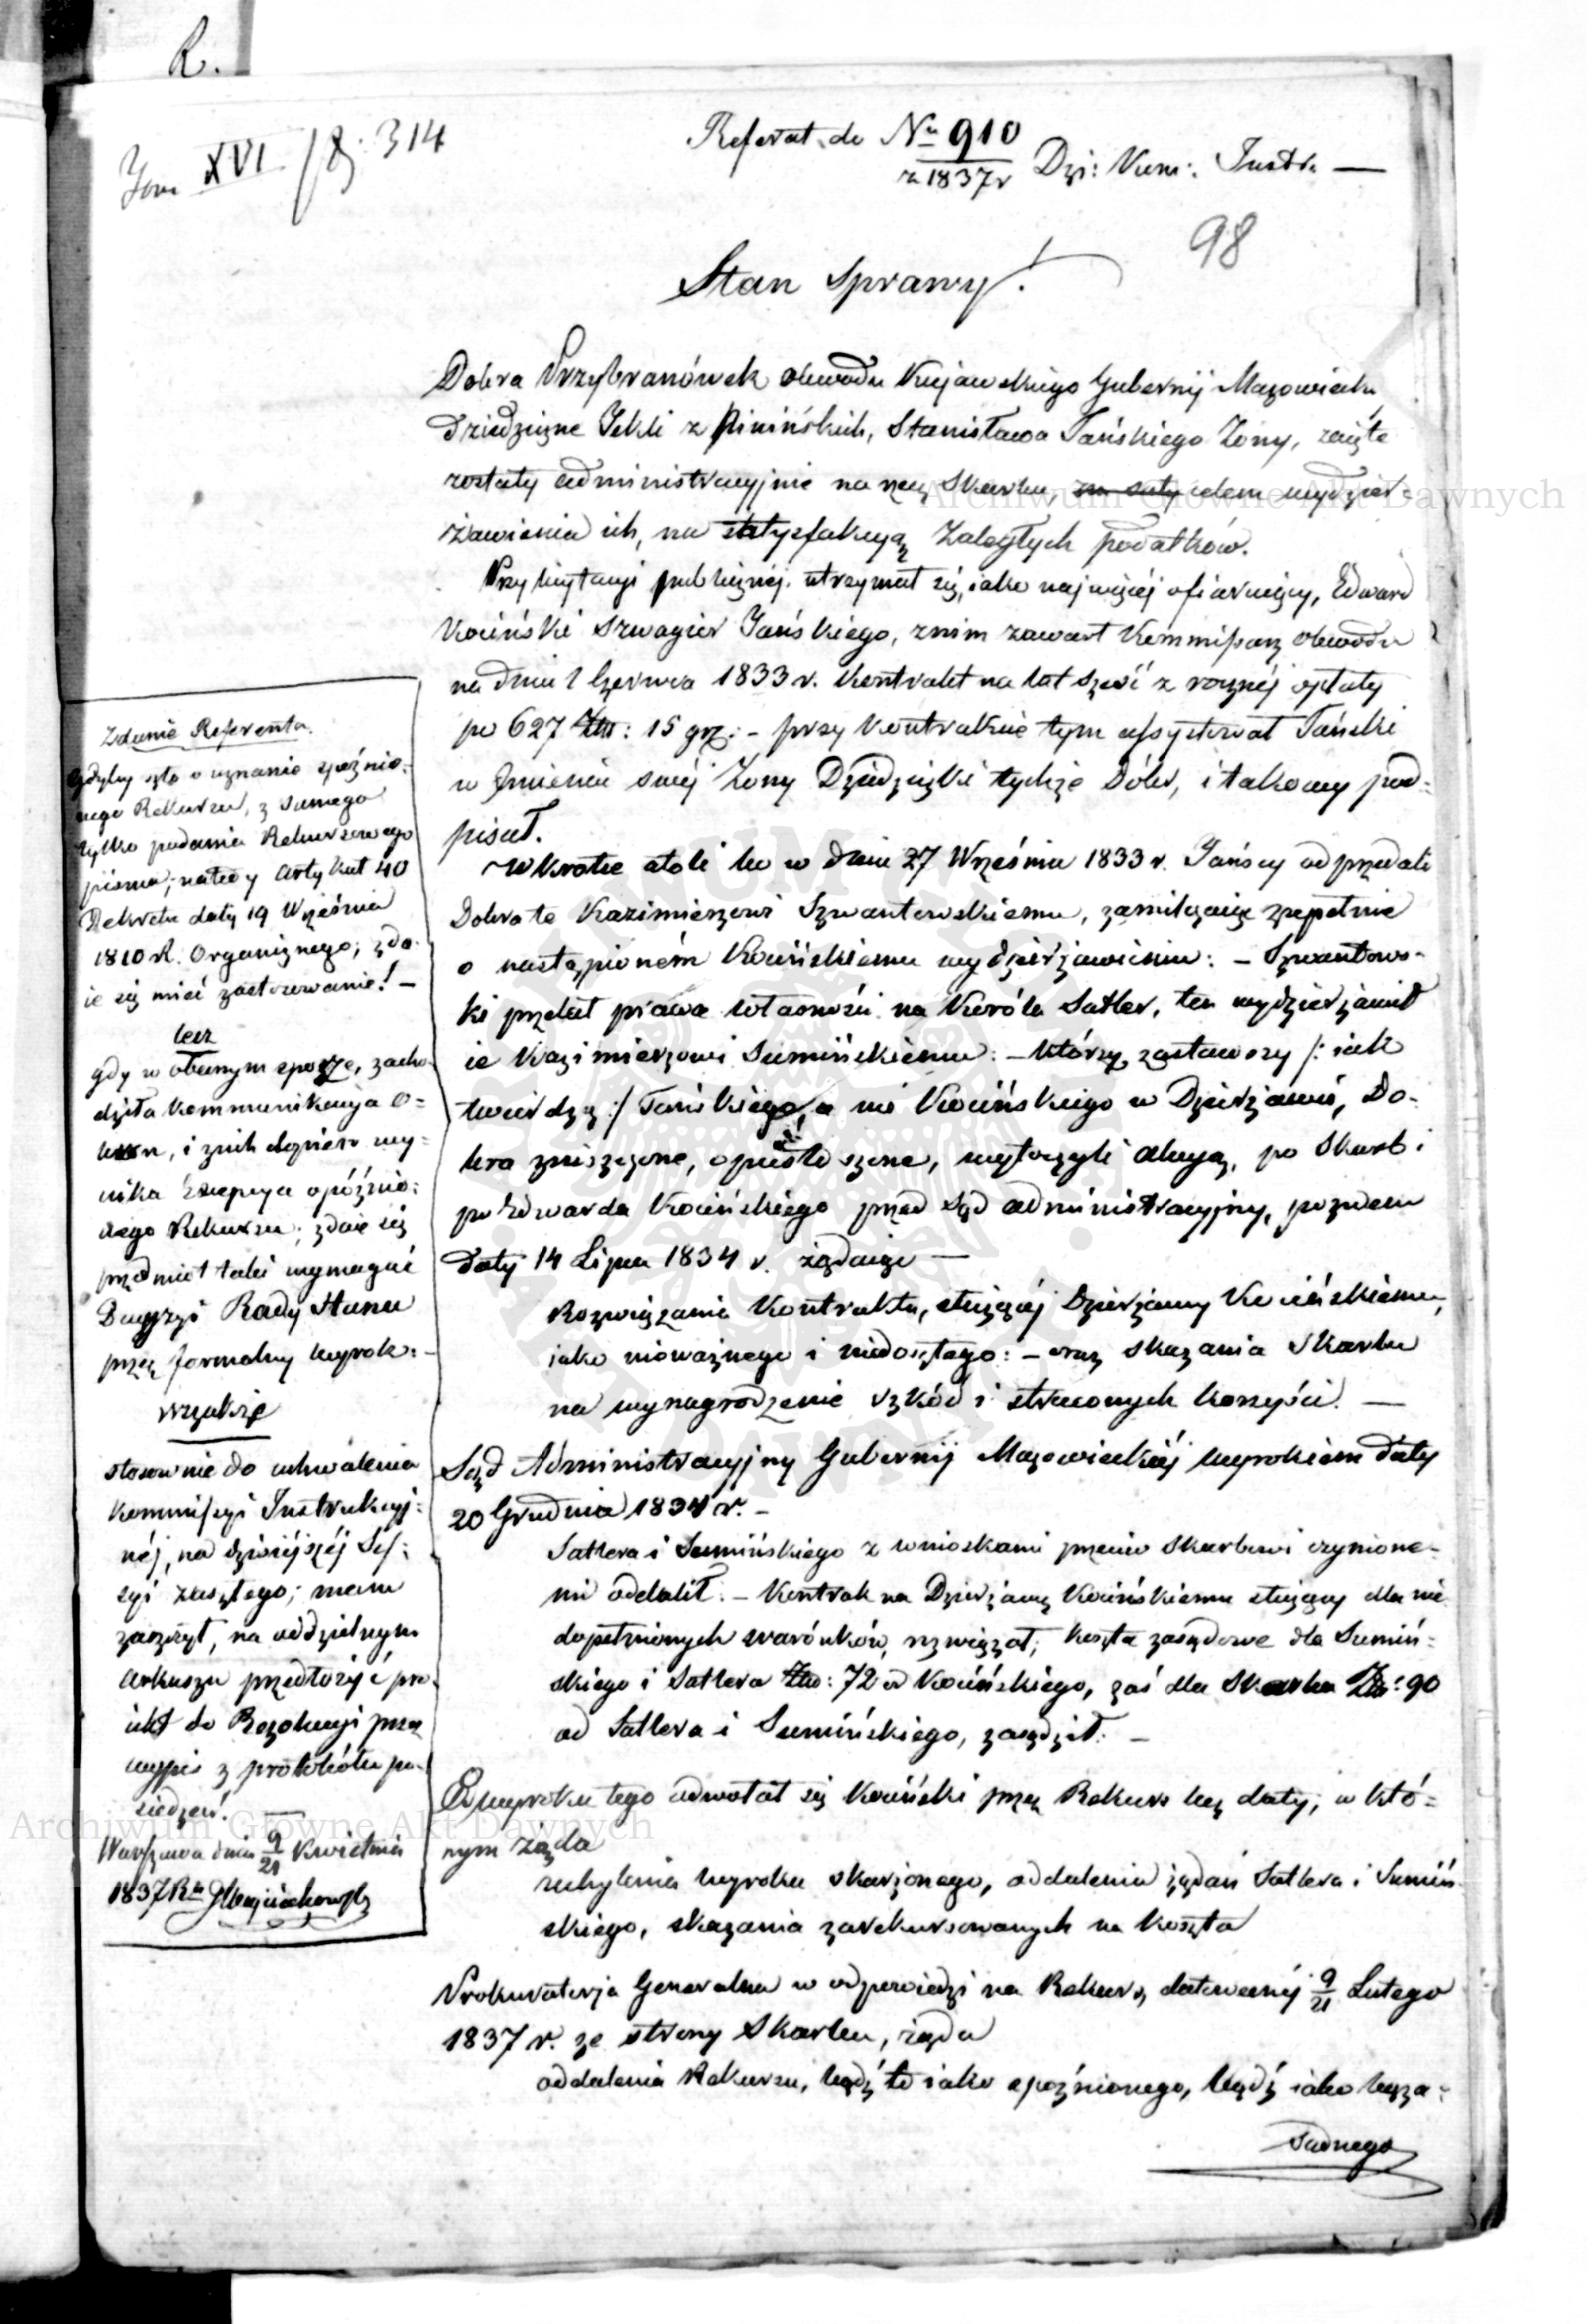 R.
Tom XVI f 8; 314
Referat do Nu 910
z 1837 r Dzi: Kom: Instr. —
98
Stan Sprawy.
Dobra Przybranówek obwodu Kujawskiego Gubernij Mazowieckiej
dziedziczne Tekli z Pinińskich, Stanisława Tańskiego Żony, zajęte
zostały administracyjnie na rzecz Skarbu, celem wydzier-
żawienia ich, na satysfakcyą zaległych podatków.
Przy licytacyi publicznéj utrzymał się, iako najwięcéj ofiaruiący, Edward
Kociński Szwagier Tańskiego, z nim zawarł Kommissarz obwodu
na dniu 1 Czerwca 1833 r. Kontrakt na lat sześć z rocznéj opłaty
po 627 Złtt: 15 grz: - przy kontrakcie tym assystował Tański
w Imieniu swéj Żony Dziedziczki tychże Dóbr, i takowy pod-
pisał.
Wkrotce atoli bo w dniu 27 Września 1833 r. Tańscy odprzedali
Dobra te Kazimierzowi Szwantowskiemu, zamilczaiąc zupełnie
o nastąpioném Kocińskiemu wydzierżawieniu: - Szwantows-
ki przelał prawa własności na Karóla Satler, ten wydzierżawił
ie Kazimierzowi Sumińskiemu: - którzy zastawszy /: iak
twierdzą :/ Tańskiego, a nie Kocińskiego w Dzierżawie, Do-
bra zniszczone, opustoszone, wytoczyli akcyą, po Skarb i
po Edwarda Kocińskiego przed Sąd administracyjny, pozwem
daty 14 Lipca 1834 r. żądaiąc —
Rozwiązania Kontraktu, służącéj Dzierżawy Kocińskiemu,
jako nieważnego i niedoszłego: - oraz skazania Skarbu
na wynagrodzenie szkód i straconych korzyści. —
Sąd Administracyjny Gubernij Mazowieckiéj wyrokiem daty
20 Grudnia 1834 r. -
Satlera i Sumińskiego z wnioskami przeciw Skarbowi czynione-
mi oddalił. - Kontrak na Dzierżawę Kocińskiemu służący dla nie
dopełnionych warónków, rozwiązał; koszta zasądowe dla Sumiń-
skiego i Satlera Złtt: 72 od Kocińskiego, zaś dla Skarbu Złtt: 90
od Satlera i Sumińskiego, zasądził. -
Od wyroku tego odwołał się Kociński przez Rekurs bez daty; w któ-
rym żąda
uchylenia wyroku skarżonego, oddalenia żądań Satlera i Sumiń-
skiego, skazania zarekursowanych na koszta
Prokuratorja Generalna w odpowiedzi na Rekurs, datowanéj 9/21 Lutego
1837 r. ze strony Skarbu, żąda
oddalenia Rekursu, bądź to iako spoźnionego, bądź iako bezza-
sadnego
Zdanie Referenta.
Gdyby szło o uznanie spóźnio-
nego Rekursu, z samego
tylko podania Rekursowego
pisma; natedy Artykuł 40
Dekretu daty 19 Września
1810 R. Organicznego; zda-
ie się mieć zastosowanie! -
lecz
gdy w obecnym sporze, zacho-
dziła kommunikacyja O-
bron, i z nich dopiero wy-
nika Excepcya opóźnio-
nego Rekursu; zdaie się
przedmiot taki wymagać
Decyzyi Rady Stanu
przez formalny wyrok: -
wszakże
stosownie do uchwalenia
Kommissyi Instrukcyj-
néj, na dzisiéjszéj Ses-
syi zaszłego; mam
zaszczyt, na oddzielnym
Arkuszu przedłożyć pro-
iekt do Rezolucyi przez
wypis z protokółu po-
siedzeń! —
Warszawa dnia 9/21 Kwietnia
1837 Rku